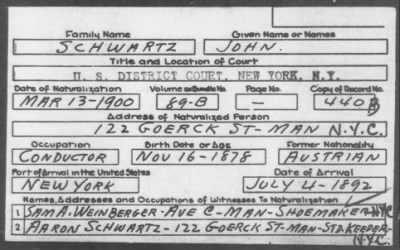 Family Name Given Name or Names
SCHWARTZ JOHN.
Title and Location of Court
U. S. DISTRICT COURT, NEW YORK, N.Y.
Date of Naturalization Volume or Bundle No. Page No. Copy of Record No.
MAR 13-1900 89-B — 440
Address of Naturalized Person
122 GOERCK ST-MAN N.Y.C.
Occupation Birth Date or Age Former Nationality
CONDUCTOR NOV 16-1878 AUSTRIAN
Port of Arrival in the United States Date of Arrival
NEW YORK JULY 4-1892
Names, Addresses and Occupations of Witnesses To Naturalization
1 SAM A. WEINBERGER-AVE C-MAN-SHOEMAKER NYC
2 AARON SCHWARTZ-122 GOERCK ST-MAN-STD. KEEPER-
N.Y.C.